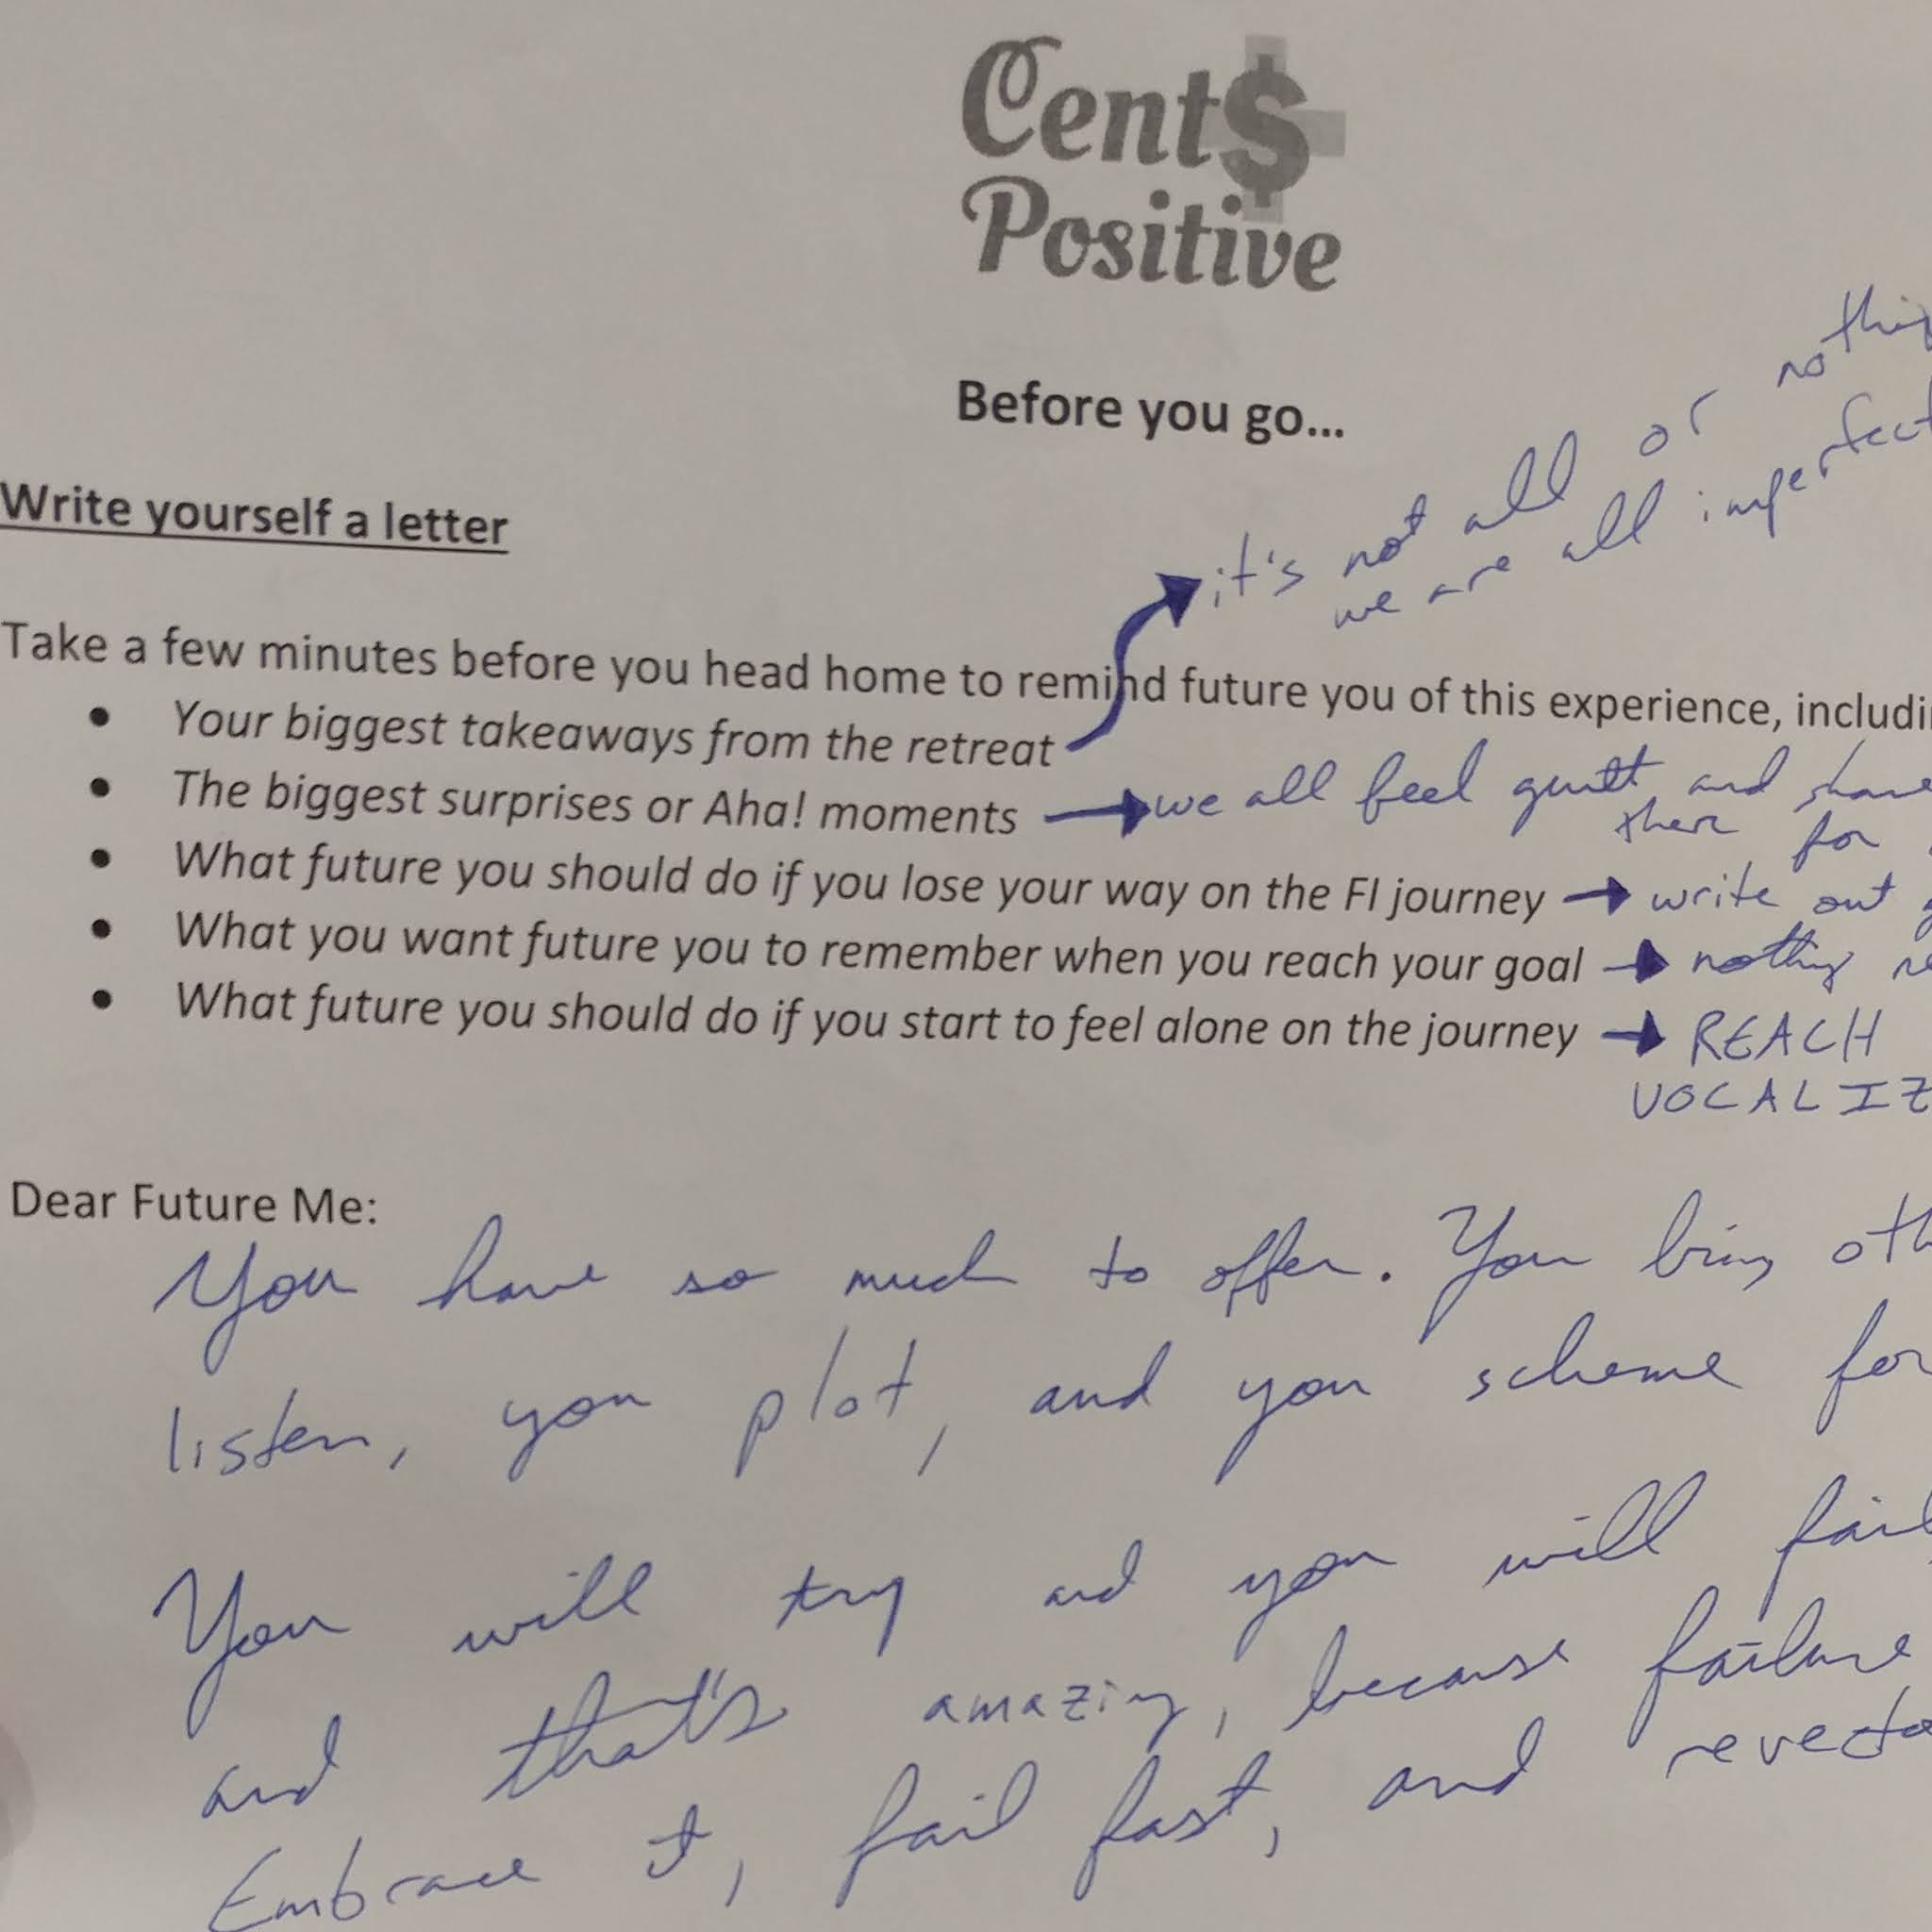 Cent$
Positive
Before you go...
it's not all or
we are all
Write yourself a letter
Take a few minutes before you head home to remind future you of this experience,
• Your biggest takeaways from the retreat
• The biggest surprises or Aha! moments → we all feel guilt and
there for
• What future you should do if you lose your way on the FI journey → write out
• What you want future you to remember when you reach your goal → nothing
• What future you should do if you start to feel alone on the journey → REACH
Dear Future Me:
You have so much to offer. You bring
listen, you plot, and you scheme for
You will try and you will fail
and that's amazing, because failure
Embrace it, fail fast, and